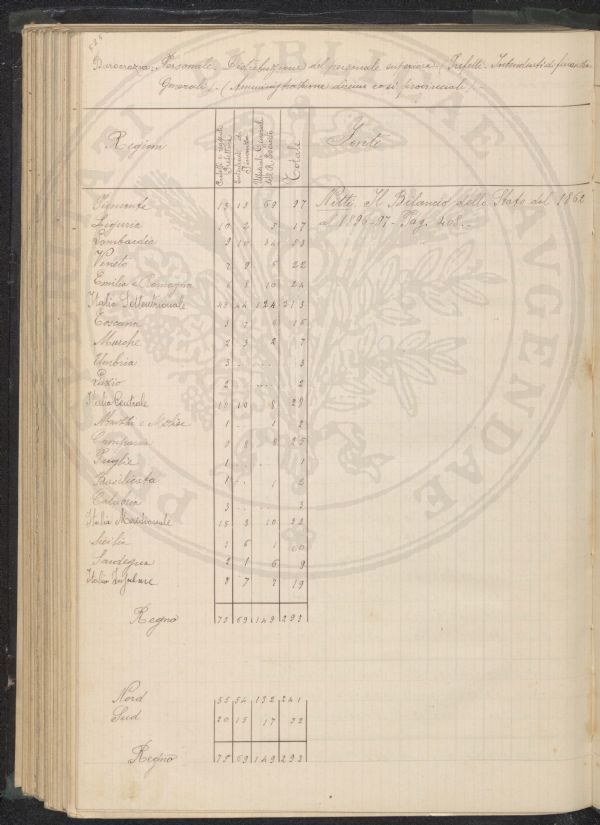 Burocrazia. Personale. Distribuzione del personale superiore (Prefetti. Intendenti di finanza.
Generali). (Amministrazione
Regioni Intendenti di Totale Fonti
Piemonte 15 13 69 97 Nitti. Il Bilancio dello Stato dal 1862
Liguria 10 2 17 al 1896-97. Pag. 408.
Lombardia 9 10 34 53
Veneto 7 9 6 22
Emilia e Romagna 6 8 10 24
Italia Settentrionale 44 124 213
Toscana 15
Marche 2 3 2 7
Umbria 3 .. .... 3
Lazio 2 .. .... 2
Italia Centrale 10 8 29
Abruzzi e Molise 1 .. 1 2
Campania 9 8 8 25
Puglie 1 .. .. 1
Basilicata 1 .. 1 2
Calabria 3 .. ... 3
Italia Meridionale 15 8 10 33
Sicilia 6 1
Sardegna 2 1 6 9
Italia Insulare 7 7 19
Regno 75 69 149 293
Nord 55 54 132 241
Sud 20 15 17 52
Regno 75 69 149 293